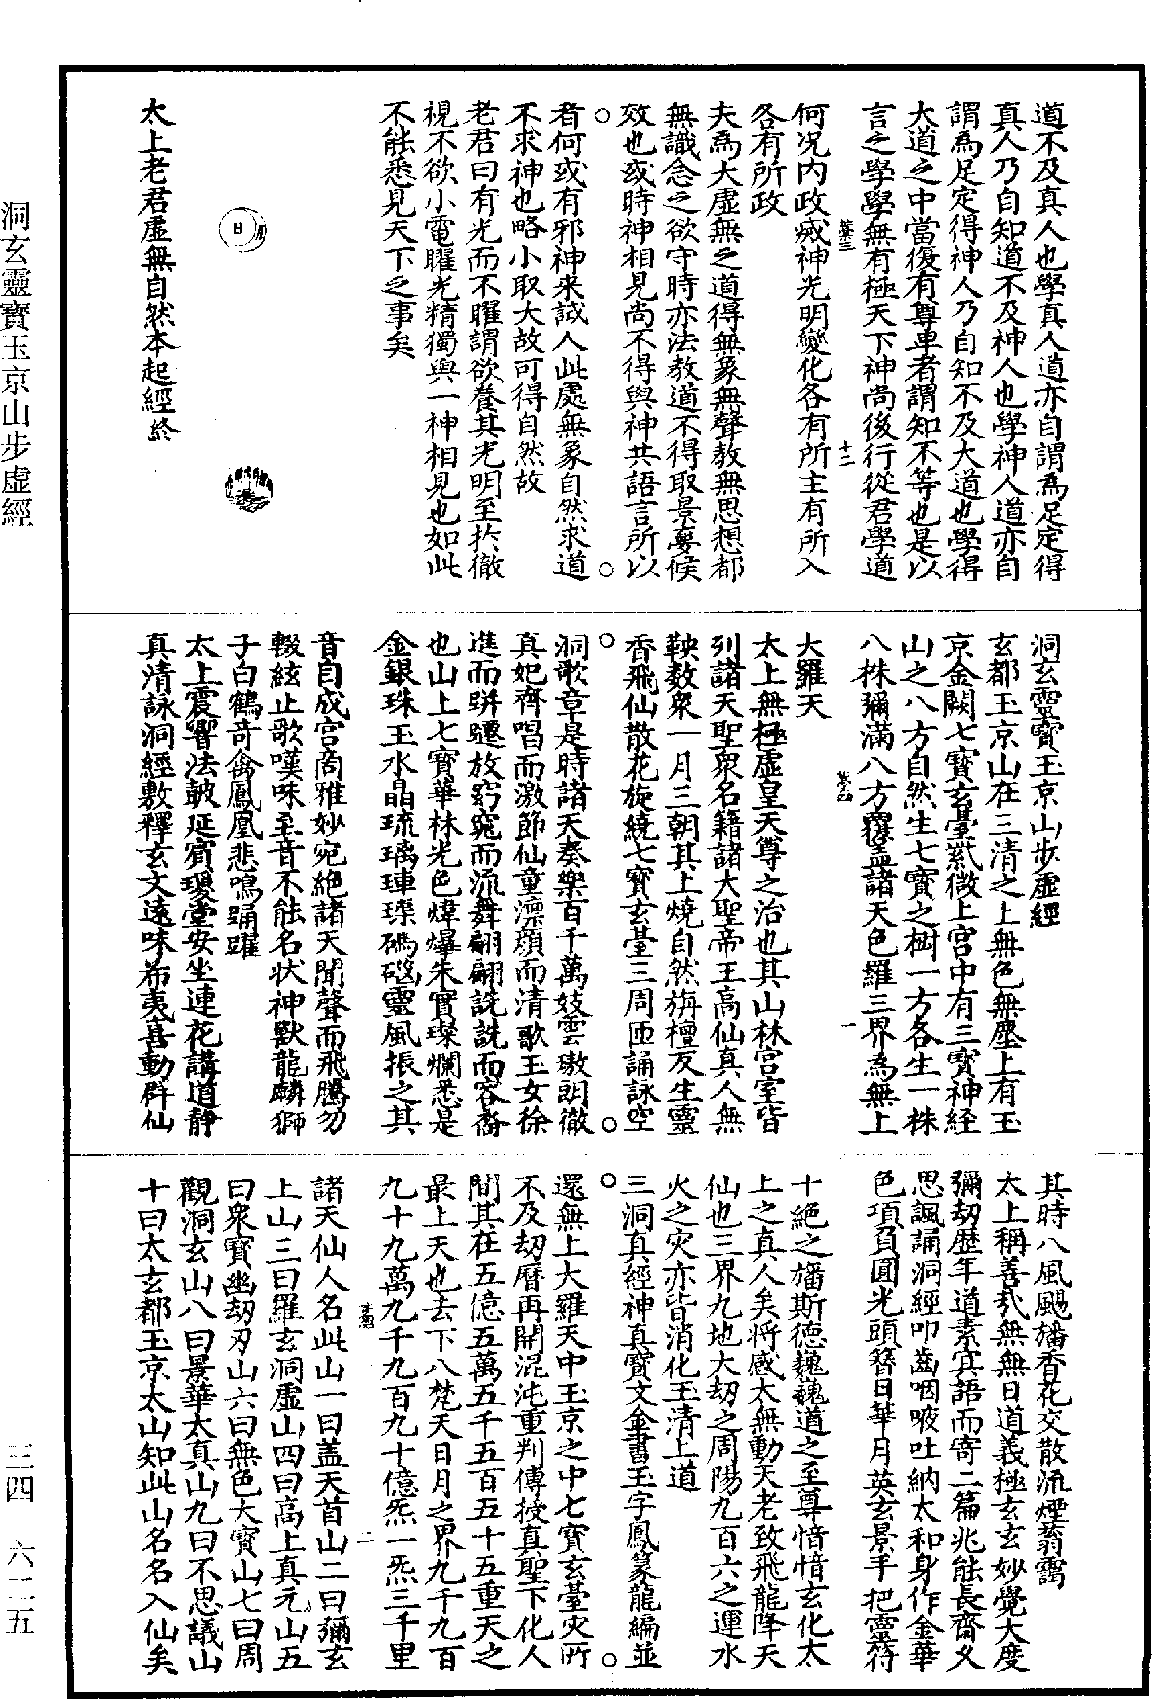 洞玄靈寶玉京山步虛經
三四
六二五
道不及真人也學真人道亦自謂為足定得
真人乃自知道不及神人也學神人道亦自
謂為足定得神人乃自知不及大道也學得
大道之中當復有尊卑者謂知不等也是以
言之學學無有極天下神尚後行從君學道
何況內政威神光明變化各有所主有所入
各有所政
夫為大虛無之道得無象無聲教無思想都
無識念之欲守時亦法教道不得取景夢候
效也或時神相見尚不得與神共語言所以
者何或有邪神來試人此處無象自然求道
不求神也略小取大故可得自然故
老君曰有光而不曜謂欲養其光明至於徹
視不欲小電曜光精獨與一神相見也如此
不能悉見天下之事矣
太上老君虛無自然本起經終
洞玄靈寶玉京山步虛經
玄都玉京山在三清之上無色無塵上有玉
京金闕七寶玄臺紫微上宮中有三寶神經
山之八方自然生七寶之樹一方各生一株
八株彌滿八方覆蓋諸天包羅三界為無上
大羅天
太上無極虛皇天尊之治也其山林宮室皆
列諸天聖眾名籍諸大聖帝王高仙真人無
鞅數眾一月三朝其上燒自然旃檀反生靈
香飛仙散花旋繞七寶玄臺三周匝誦詠空
洞歌章是時諸天奏樂百千萬妓雲璈朗徹
真妃齊唱而激節仙童凜顏而清歌玉女徐
進而跰躚放窈窕而流舞翩翩詵詵而容裔
也山上七寶華林光色煒爆朱實璨爛悉是
金銀珠玉水晶琉璃硨磲碼碯靈風振之其
音自成宮商雅妙宛絕諸天聞聲而飛騰勿
輟絃止歌嘆味至音不能名狀神獸龍麟獅
子白鶴奇禽鳳凰悲鳴踊躍
太上震響法鼓延賓瓊堂安坐蓮花講道靜
真清詠洞經敷釋玄文遠味希夷喜動群仙
其時八風颺旛香花交散流煙蓊靄
太上稱善哉無無曰道義極玄玄妙覺大度
彌劫歷年道素寘語而寄二篇兆能長齋久
思諷誦洞經叩齒咽液吐納太和身作金華
色項負圓光頭簪日華月英玄景手把靈符
十絕之旛斯德巍巍道之至尊愔愔玄化太
上之真人矣將感太無動天老致飛龍降天
仙也三界九地大劫之周陽九百六之運水
火之災亦皆消化玉清上道
三洞真經神真寶文金書玉字鳳篆龍編並
還無上大羅天中玉京之中七寶玄臺災所
不及劫曆再開混沌重判傳授真聖下化人
間其在五億五萬五千五百五十五重天之
最上天也去下八梵天日月之界九千九百
九十九萬九千九百九十億炁一炁三千里
諸天仙人名此山一曰蓋天首山二曰彌玄
上山三曰羅玄洞虛山四曰高上真元山五
曰眾寶幽劫刃山六曰無色大寶山七曰周
觀洞玄山八曰景華太真山九曰不思議山
十曰太玄都玉京太山知此山名名入仙矣